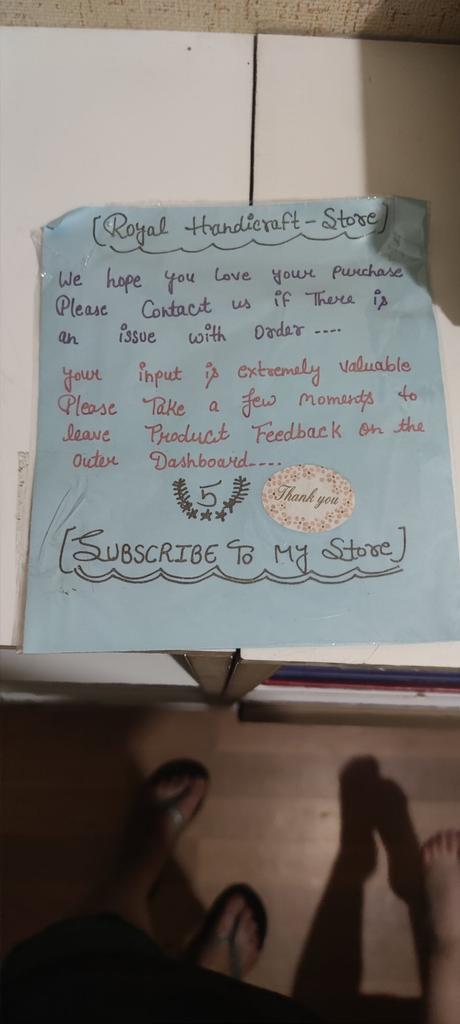 [Royal Handicraft-Store]
We hope you Love your purchase
Please Contact us if There is
an issue with Order ....
your input is extremely valuable
Please Take a few Moments to
leave Product Feedback on the
Outer Dashboard....
5
Thank you
[SUBSCRIBE To My Store]